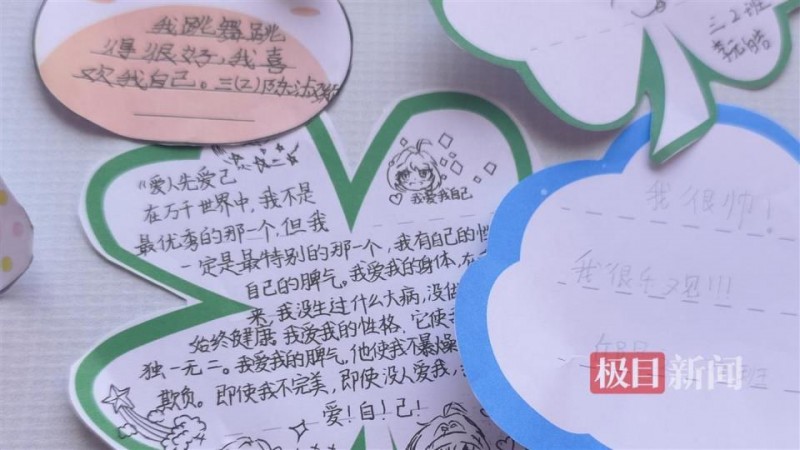 我跳舞跳
得很好,我喜
欢我自己。三(2)陈
三2班
"爱人先爱己
我爱我自己
在万千世界中,我不是
最优秀的那一个,但我
一定是最特别的那一个,我有自己的性
自己的脾气。我爱我的身体,
来,我没生过什么大病,没
始终健康。我爱我的性格,它使
独一无二。我爱我的脾气。他使我不暴躁
欺负。即使我不完美,即使没人爱我,
爱!自!己!
我很帅!
我很乐观!!!
班
极目新闻